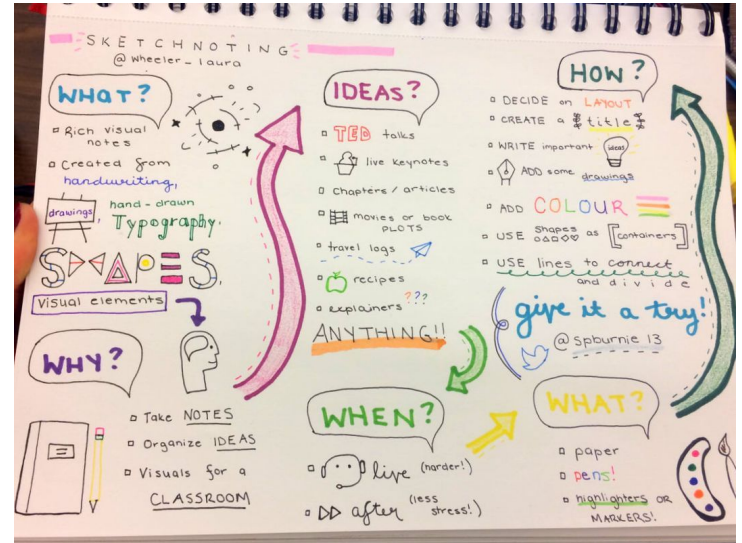 SKETCHNOTING
@wheeler_laura
WHAT?
Rich visual
notes
Created from
handwriting,
drawings,
hand-drawn
Typography.
SHAPES,
Visual elements
WHY?
Take NOTES
Organize IDEAS
Visuals for a
CLASSROOM
IDEAS?
TED talks
live keynotes
chapters / articles
movies or book
PLOTS
travel logs
recipes
explainers ???
ANYTHING!!
WHEN?
live (harder!)
after (less
stress!)
HOW?
DECIDE on LAYOUT
CREATE a title
WRITE important ideas
ADD some drawings
ADD COLOUR
USE shapes as [containers]
USE lines to connect
and divide
give it a try!
@spburnie13
WHAT?
paper
pens!
highlighters OR
MARKERS!